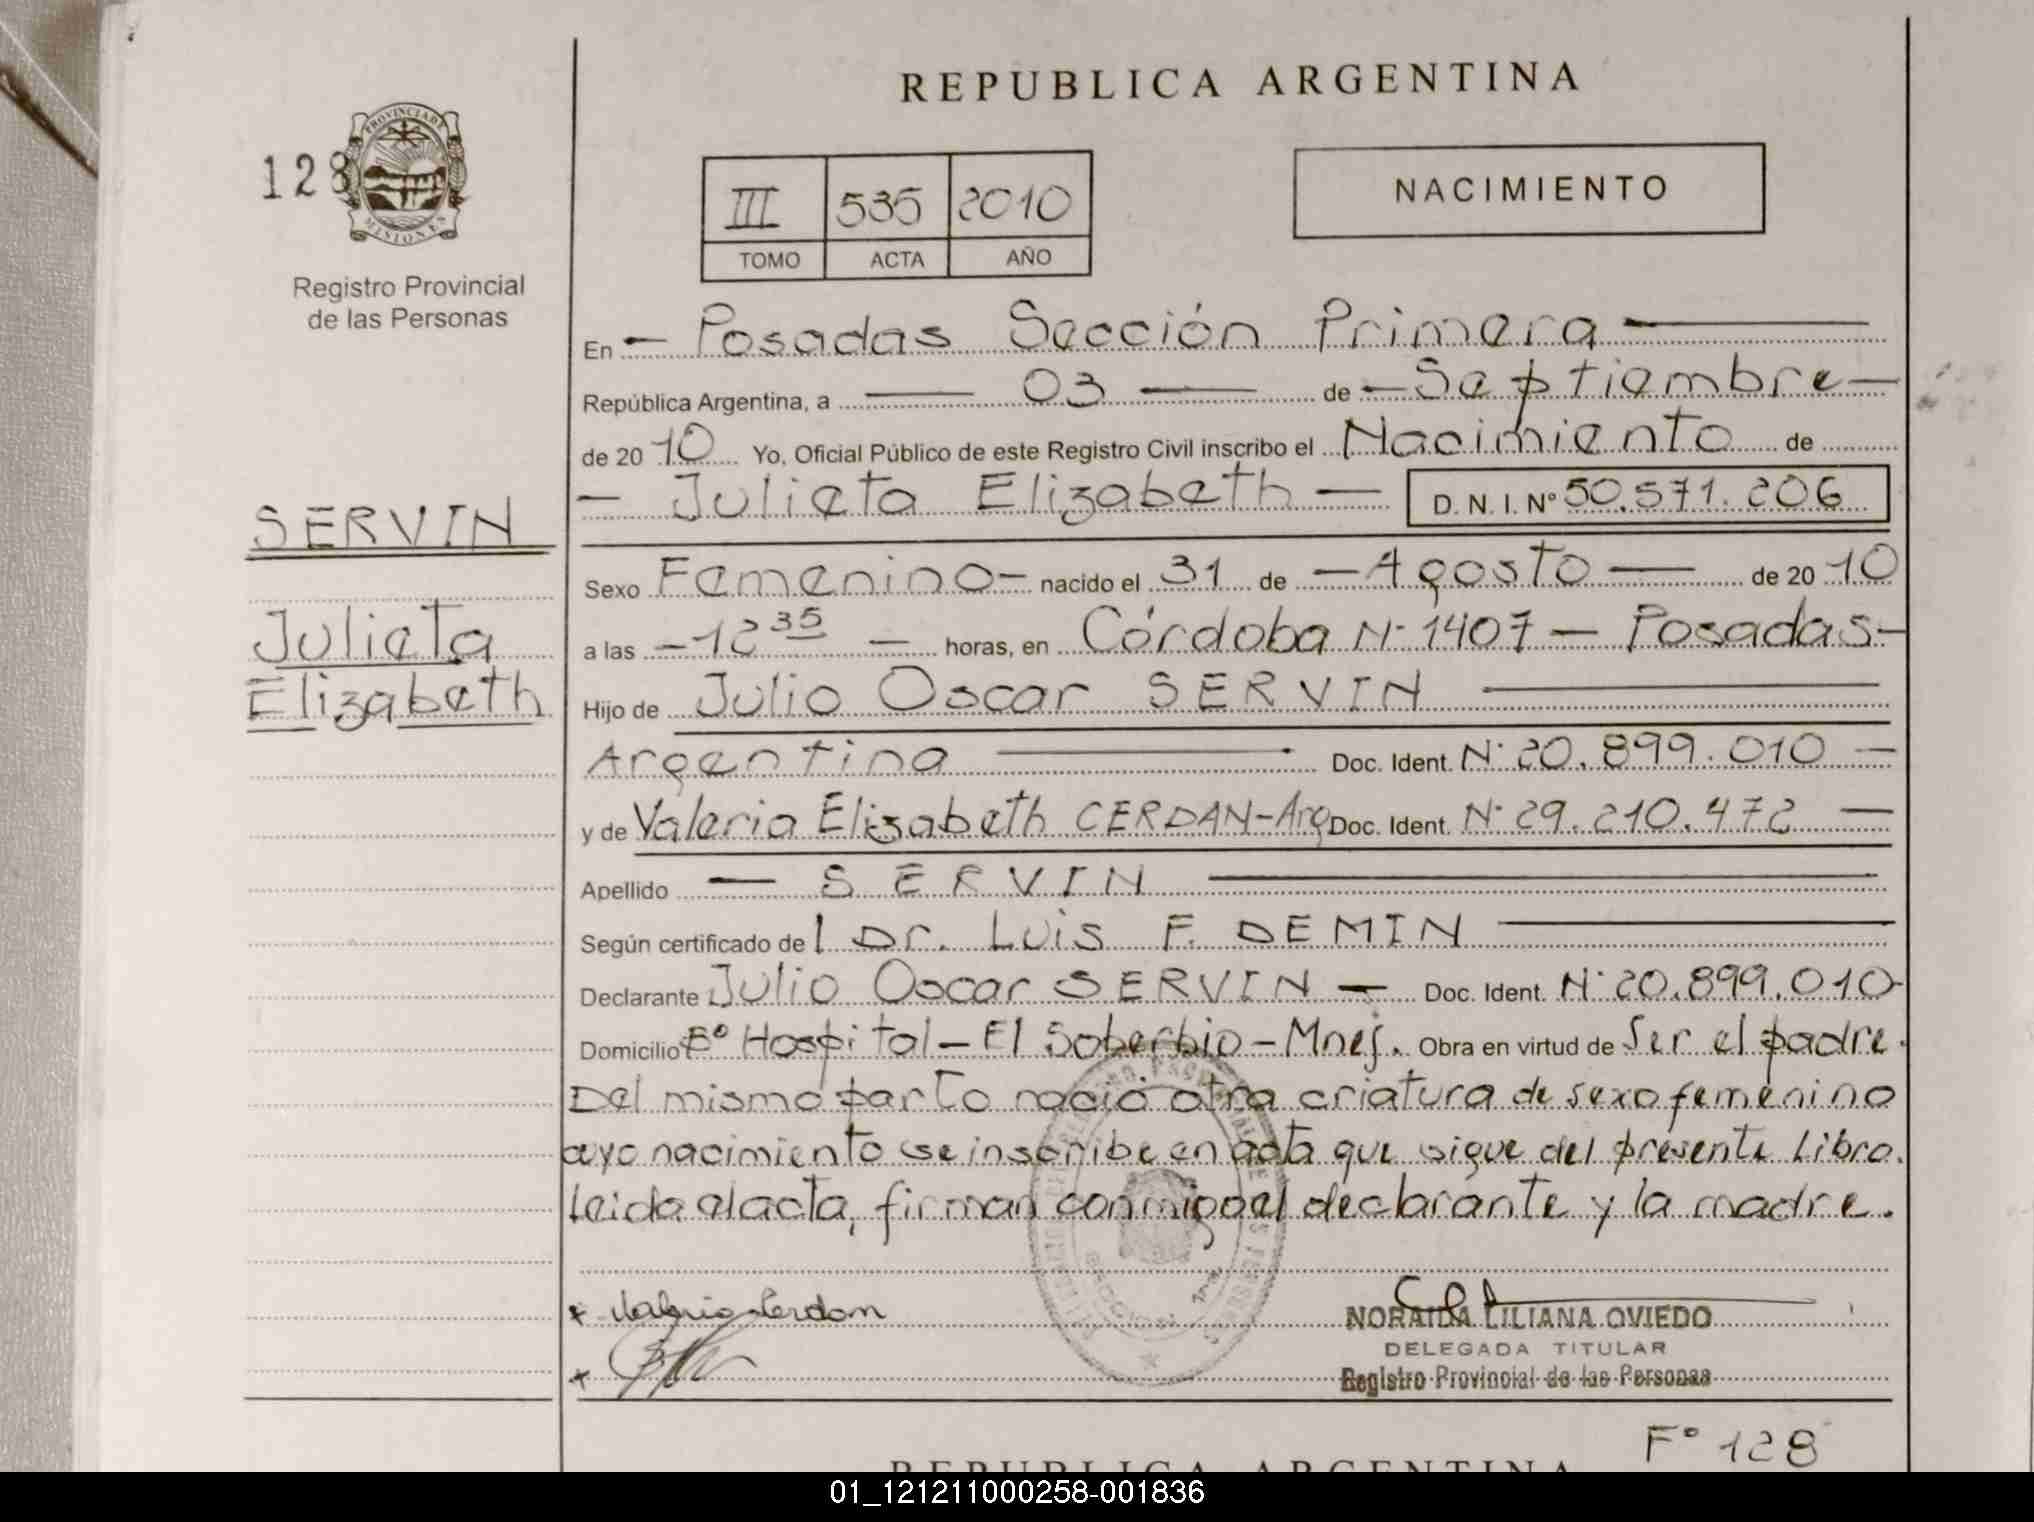 REPUBLICA ARGENTINA
128
PROVINCIA DE
MISIONES
Registro Provincial
de las Personas
III 535 2010
TOMO ACTA AÑO
NACIMIENTO
En — Posadas Sección Primera —
República Argentina, a — 03 — de — Septiembre —
de 20 10 Yo, Oficial Público de este Registro Civil inscribo el Nacimiento de
— Julieta Elizabeth — D. N. I. Nº 50.571.206
SERVIN
Julieta
Elizabeth
Sexo Femenino — nacido el 31 de — Agosto — de 20 10
a las — 12 35 — horas, en Córdoba Nº 1407 — Posadas —
Hijo de Julio Oscar SERVIN —
Argentina — Doc. Ident. Nº 20.899.010 —
y de Valeria Elizabeth CERDAN-Arg Doc. Ident. Nº 29.210.472 —
Apellido — SERVIN —
Según certificado del Dr. Luis F. DEMIN —
Declarante Julio Oscar SERVIN — Doc. Ident. Nº 20.899.010 -
Domicilio Bº Hospital — El Soberbio — Mnes. Obra en virtud de Ser el padre.
Del mismo parto nació otra criatura de sexo femenino
cuyo nacimiento se inscribe en acta que sigue del presente Libro.
Leida el acta, firman conmigo el declarante y la madre.
x Valeria Cerdan
x
NORAIDA LILIANA OVIEDO
DELEGADA TITULAR
Registro Provincial de las Personas
Fº 128
REPUBLICA ARGENTINA
01_121211000258-001836